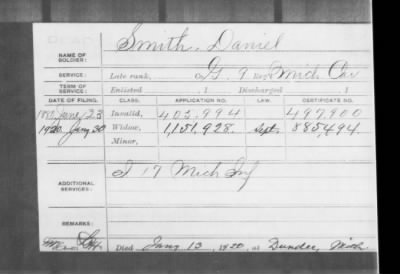 DEAD
Smith, Daniel
NAME OF
SOLDIER:
SERVICE:
Late rank, Co. G. 9 Reg't Mich Cav
TERM OF
SERVICE:
Enlisted , 1 Discharged , 1
DATE OF FILING. CLASS. APPLICATION NO. LAW. CERTIFICATE NO.
1880 June 23 Invalid, 403,994 497,900
1920 Jany 30 Widow, 1,151,928. Sept. 885,494.
Minor,
ADDITIONAL
SERVICES:
I 17 Mich Inf
REMARKS:
Died Jany 13, 1920, at Dundee, Mich.